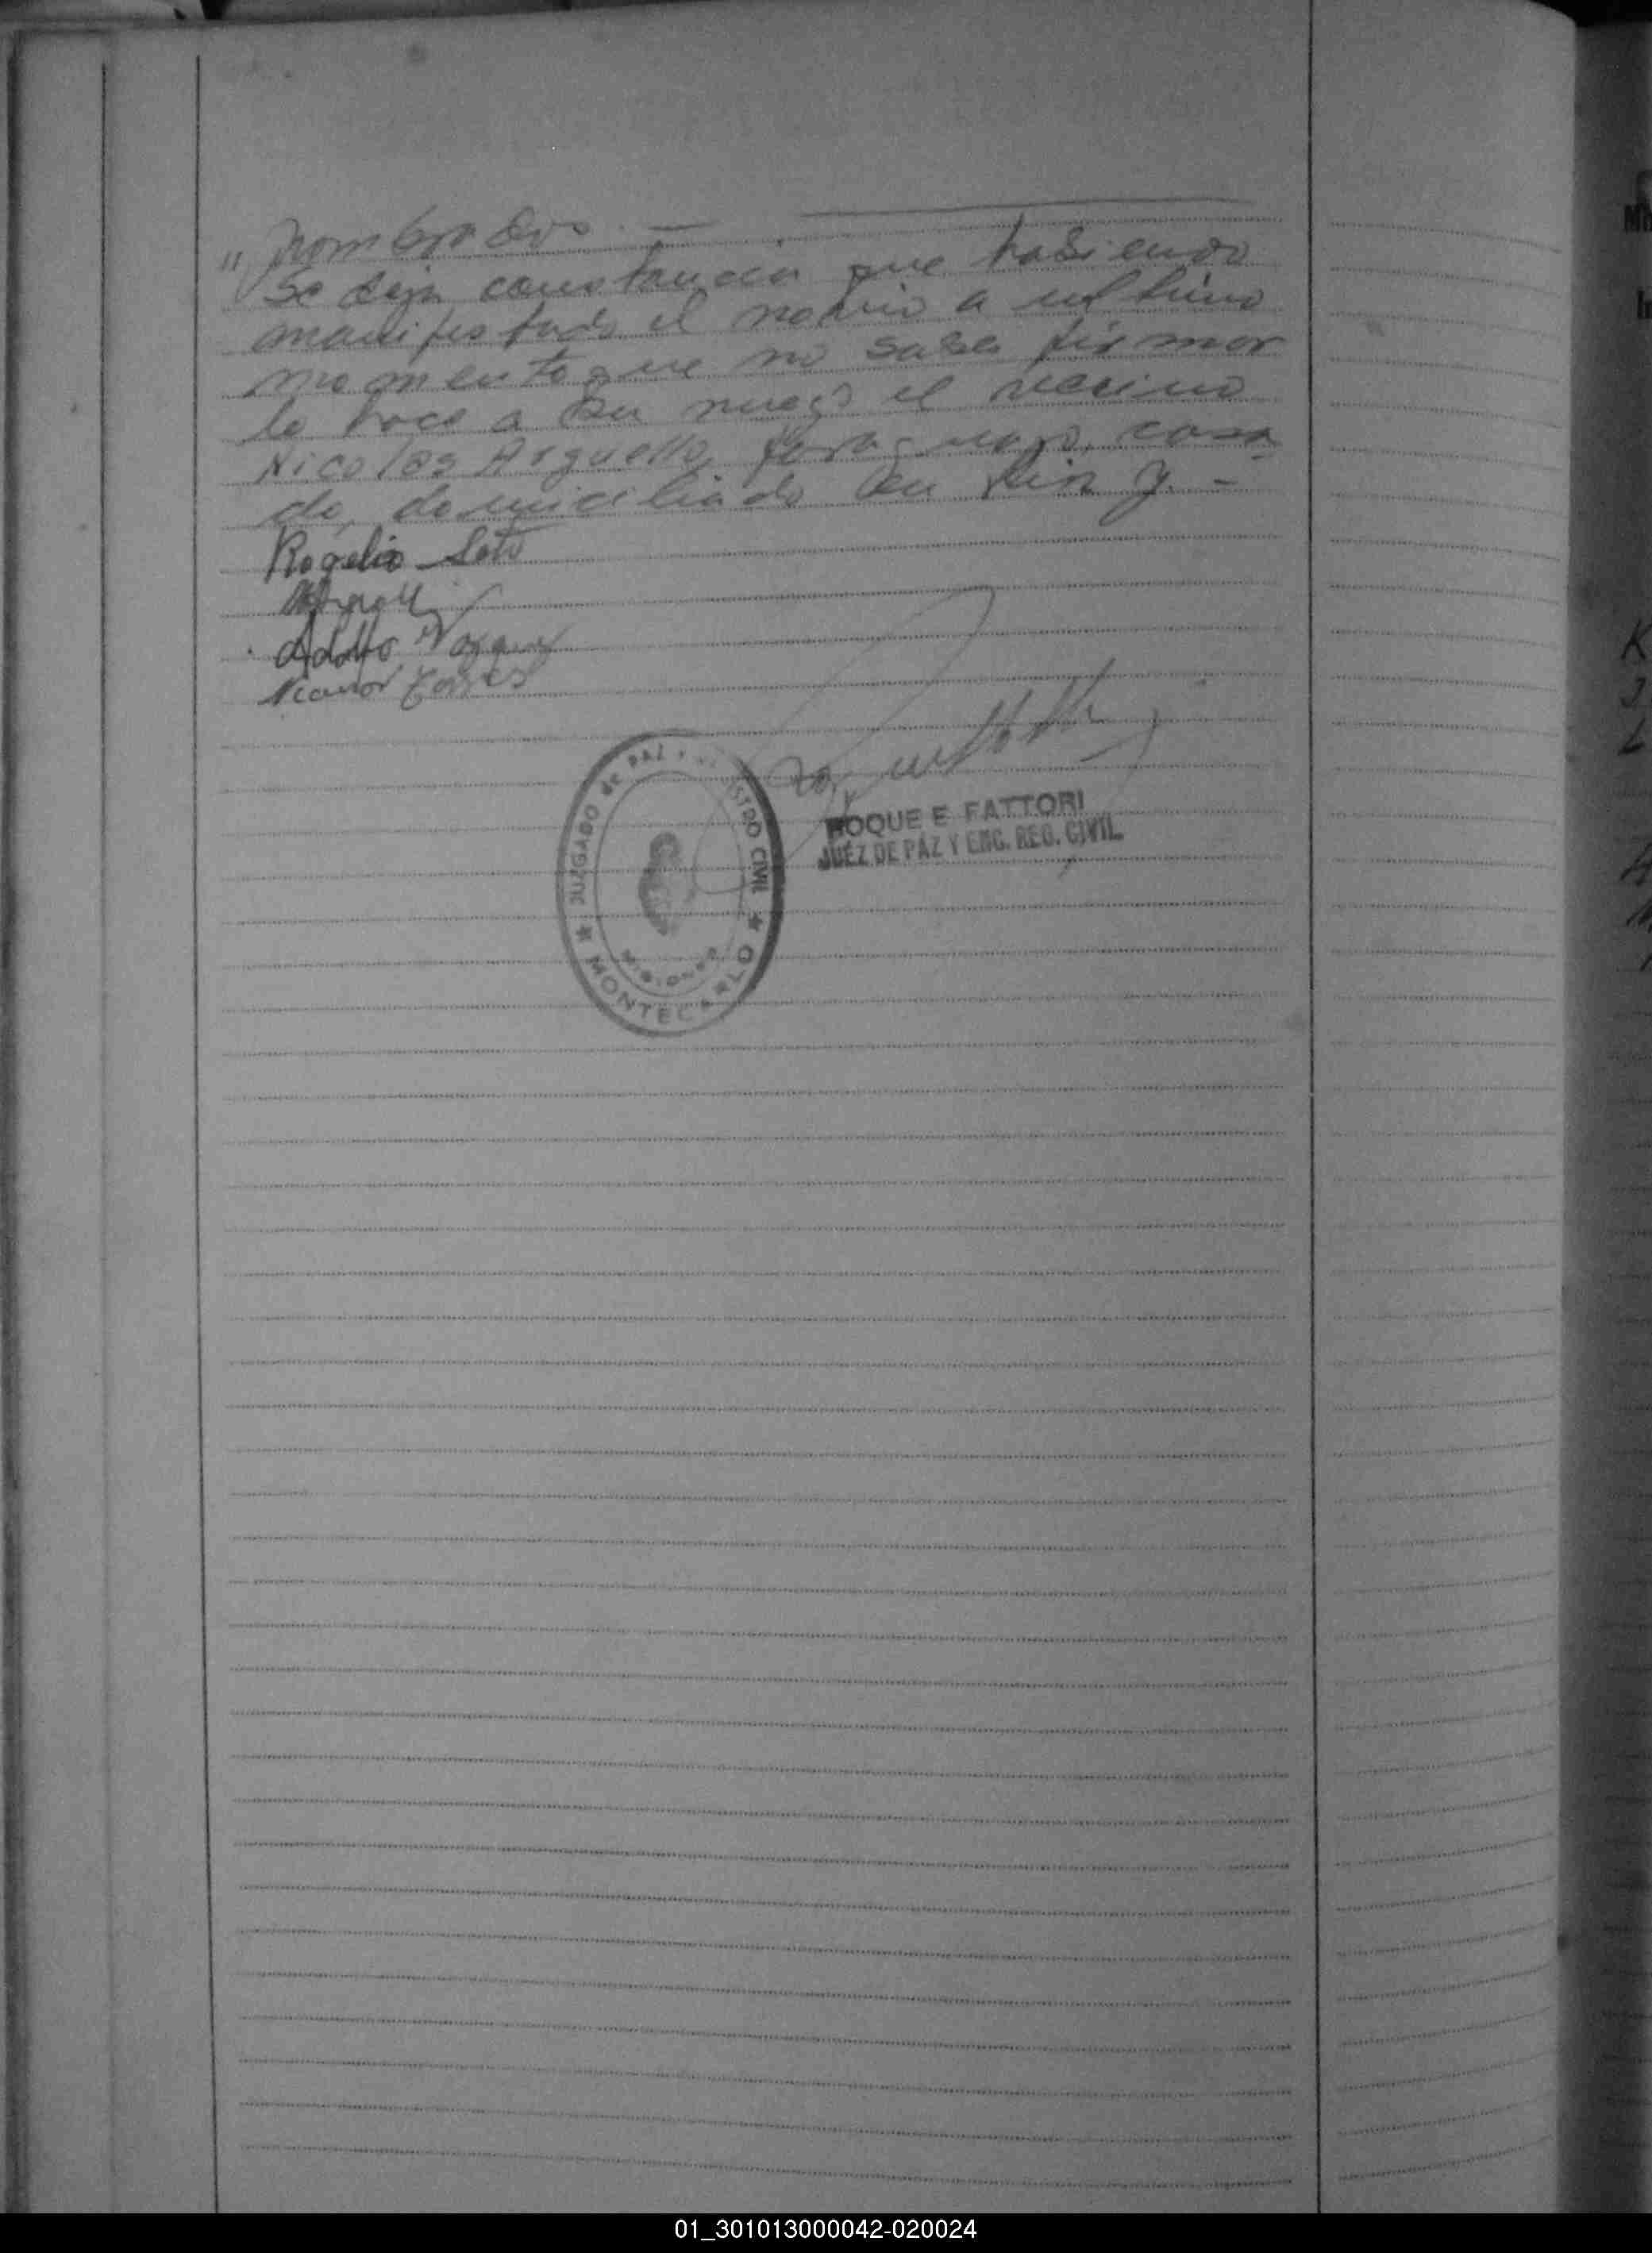 " nombrados. —
Se deja constancia que habiendo
manifestado el novio a ultimo
momento que no sabe firmar
lo hace a su ruego el vecino
Nicolas Arguello, paraguayo, casa
do, domiciliado en
Rogelio Soto
Adolfo Vazquez
Nicanor Torres
JUZGADO de PAZ Y STRO CIVIL
MISIONES
★ MONTECARLO ★
ROQUE E FATTORI
JUEZ DE PAZ Y ENC. REG. CIVIL
01_301013000042-020024